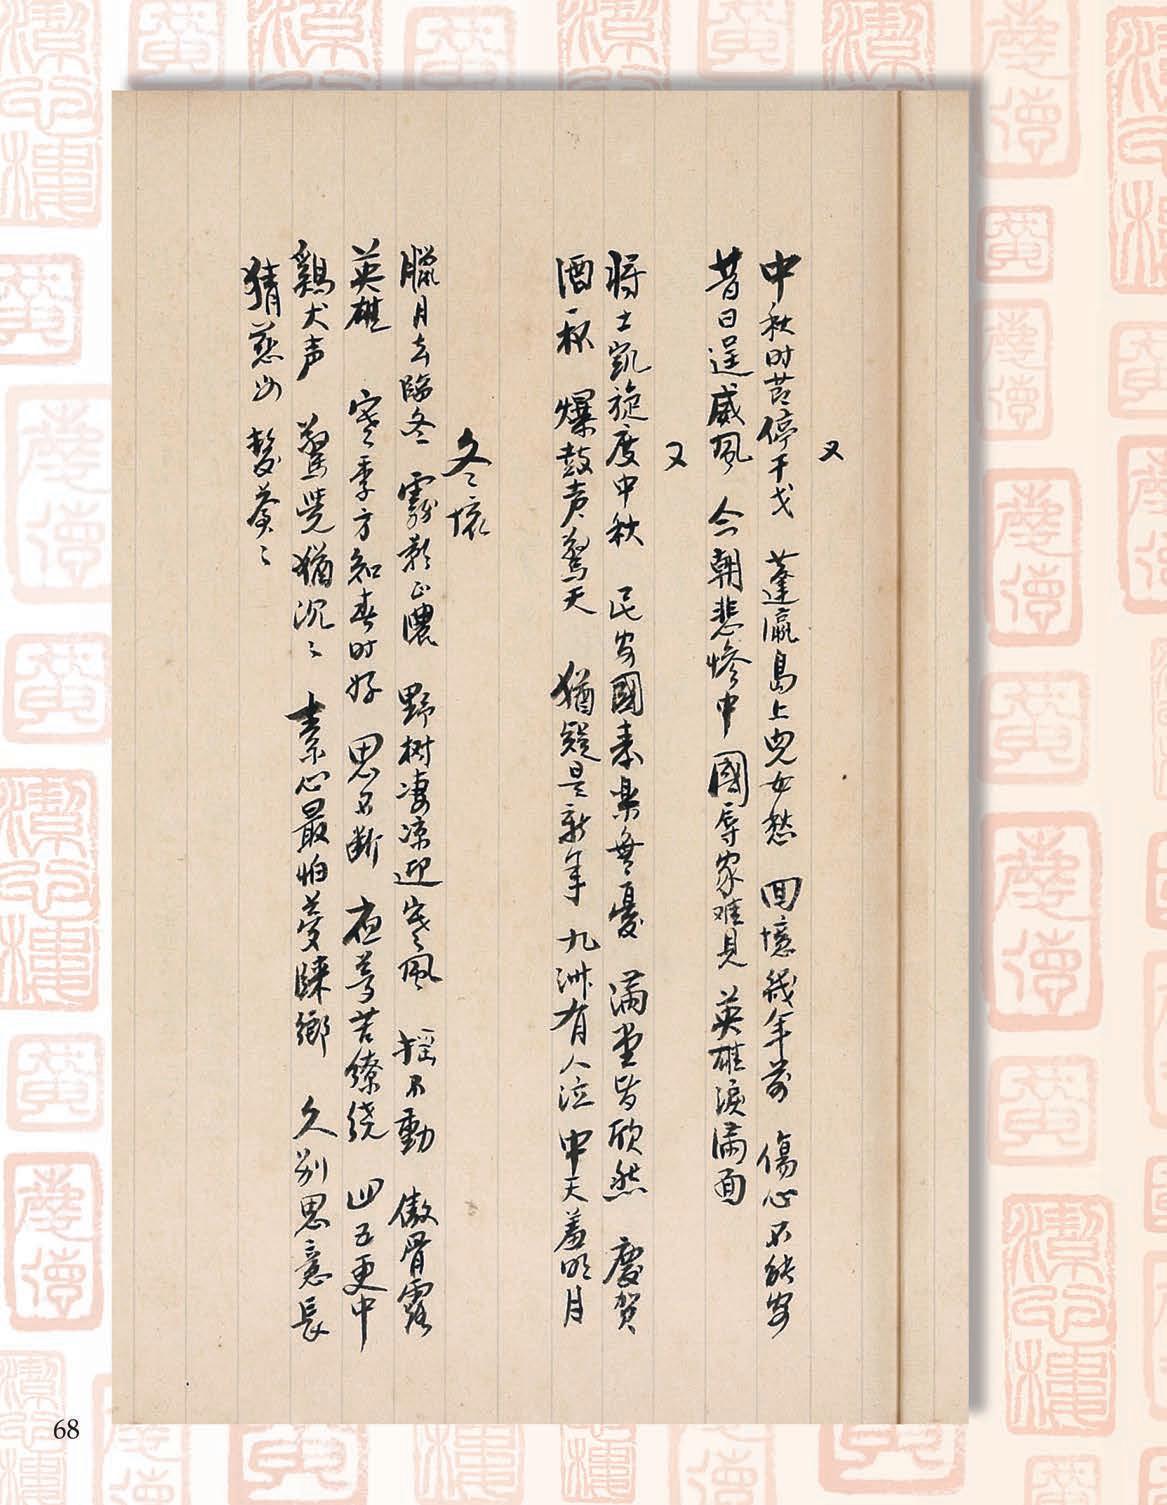 又
中秋时节停干戈 蓬瀛島上児女愁 回憶幾年前 傷心不能安
昔日逞威风 今朝悲惨中 國辱家难見 英雄淚滿面
又
将士凱旋度中秋 民安國泰樂無憂 滿堂皆欣然 慶贺
酒一杯 爆鼓声驚天 猶疑是新年 九洲有人泣 中天羞明月
冬懷
臘月去臨冬 霧影正濃 野树凄凉迎寒风 摇不動 傲骨露
英雄 寒季方知春时好 思不断 夜夢苦缭绕 四五更中
鷄犬声 驚觉猶沉〻 素心最怕夢睐鄉 久别思意長
猜慈 鬓蒼〻
68